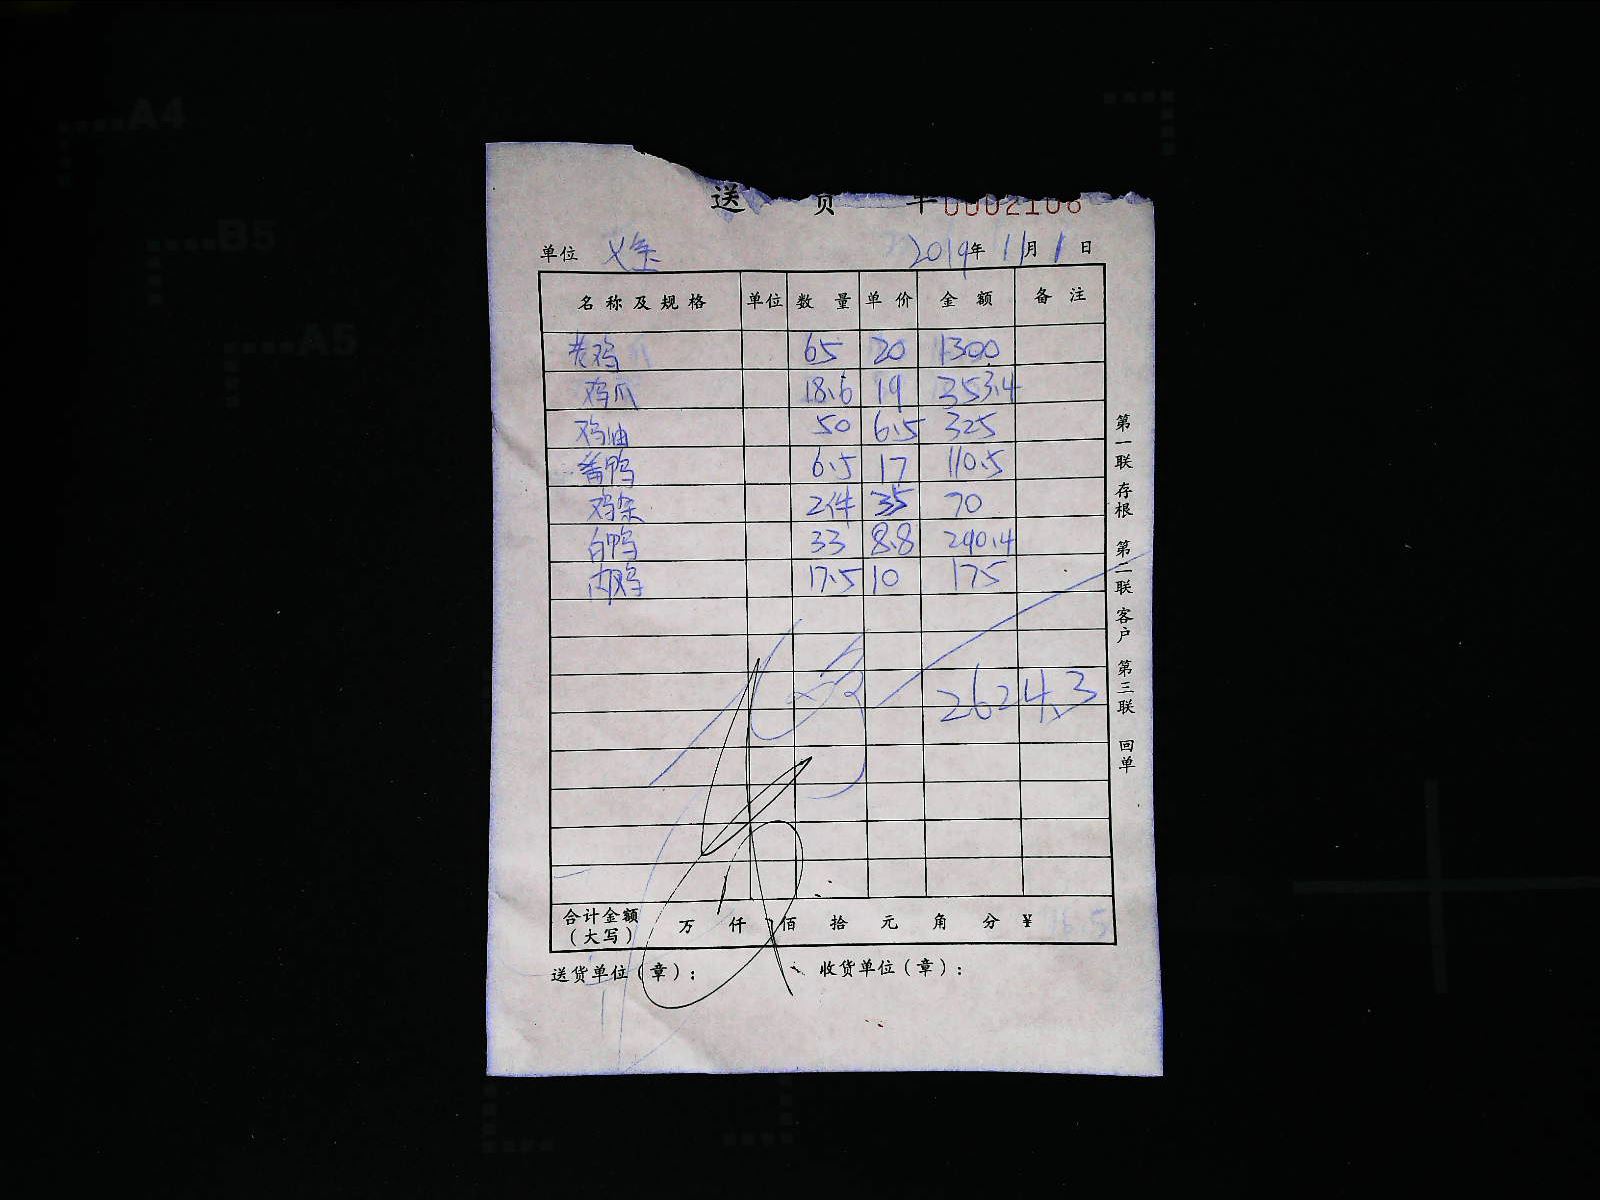 送 货 单 0002106
单位 2019年 11月 1日
名称及规格 单位 数量 单价 金额 备注
老鸡 65 20 1300
鸡爪 18.6 19 353.4
鸡油 50 6.5 325
番鸭 6.5 17 110.5
鸡杂 2件 35 70
白鸭 33 8.8 290.4
肉鸡 17.5 10 175
2624.3
合计金额（大写） 万 仟 佰 拾 元 角 分 ¥
送货单位（章）： 收货单位（章）：
第一联 存根 第二联 客户 第三联 回单
A4
B5
A5